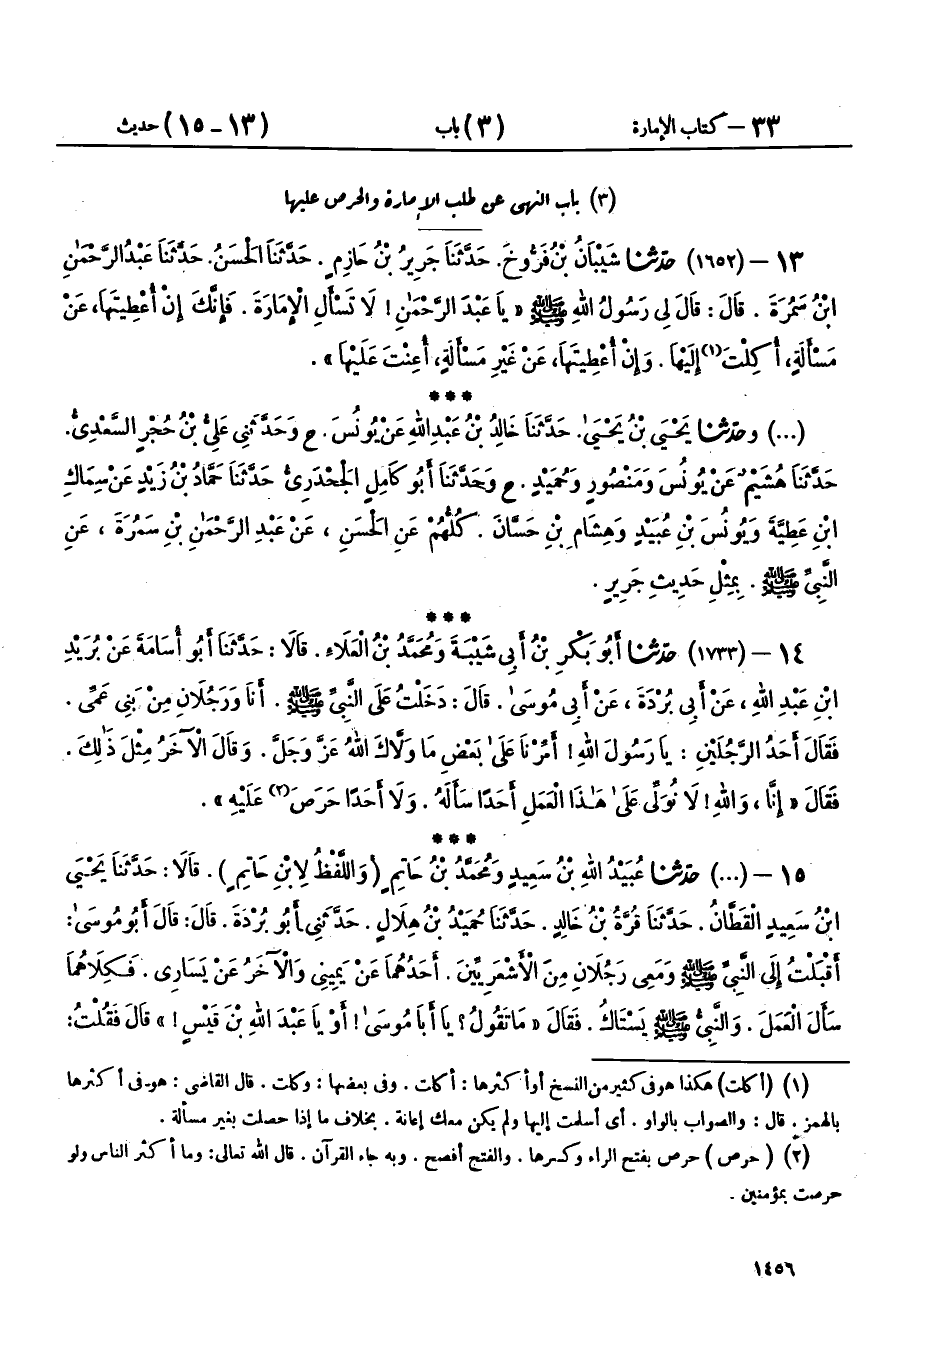 ٣٣ – كتاب الإمارة (٣) باب (١٣-١٥) حديث
(٣) باب النهى عن طلب الإمارة والحرص عليها
١٣ – (١٦٥٢) حَدَّثَنَا شَيْبَانُ بْنُ فَرُّوخَ. حَدَّثَنَا جَرِيرُ بْنُ حَازِمٍ. حَدَّثَنَا الْحَسَنُ. حَدَّثَنَا عَبْدُ الرَّحْمٰنِ
ابْنُ سَمُرَةَ . قَالَ : قَالَ لِى رَسُولُ اللهِ ﷺ « يَا عَبْدَ الرَّحْمٰنِ ! لَا تَسْأَلِ الْإِمَارَةَ . فَإِنَّكَ إِنْ أُعْطِيتَهَا، عَنْ
مَسْأَلَةٍ، أُكِلْتَ(١) إِلَيْهَا . وَإِنْ أُعْطِيتَهَا، عَنْ غَيْرِ مَسْأَلَةٍ، أُعِنْتَ عَلَيْهَا » .
***
(...) وحَدَّثَنَا يَحْيَى بْنُ يَحْيَىٰ. حَدَّثَنَا خَالِدُ بْنُ عَبْدِ اللهِ عَنْ يُونُسَ . ح وَحَدَّثَنِى عَلِىُّ بْنُ حُجْرٍ السَّعْدِىُّ.
حَدَّثَنَا هُشَيْمٌ عَنْ يُونُسَ وَمَنْصُورٍ وَحُمَيْدٍ . ح وَحَدَّثَنَا أَبُو كَامِلٍ الْجَحْدَرِىُّ حَدَّثَنَا حَمَّادُ بْنُ زَيْدٍ عَنْ سِمَاكِ
ابْنِ عَطِيَّةَ وَيُونُسَ بْنِ عُبَيْدٍ وَهِشَامِ بْنِ حَسَّانَ . كُلُّهُمْ عَنِ الْحَسَنِ ، عَنْ عَبْدِ الرَّحْمٰنِ بْنِ سَمُرَةَ ، عَنِ
النَّبِىِّ ﷺ . بِمِثْلِ حَدِيثِ جَرِيرٍ .
***
١٤ – (١٧٣٣) حَدَّثَنَا أَبُو بَكْرِ بْنُ أَبِى شَيْبَةَ وَمُحَمَّدُ بْنُ الْعَلَاءِ . قَالَا : حَدَّثَنَا أَبُو أُسَامَةَ عَنْ بُرَيْدِ
ابْنِ عَبْدِ اللهِ ، عَنْ أَبِى بُرْدَةَ ، عَنْ أَبِى مُوسَىٰ . قَالَ : دَخَلْتُ عَلَى النَّبِىِّ ﷺ . أَنَا وَرَجُلَانِ مِنْ بَنِى عَمِّى .
فَقَالَ أَحَدُ الرَّجُلَيْنِ : يَا رَسُولَ اللهِ ! أَمِّرْنَا عَلَىٰ بَعْضِ مَا وَلَّاكَ اللهُ عَزَّ وَجَلَّ . وَقَالَ الْآخَرُ مِثْلَ ذَٰلِكَ .
فَقَالَ « إِنَّا ، وَاللهِ ! لَا نُوَلِّى عَلَىٰ هَـٰذَا الْعَمَلِ أَحَدًا سَأَلَهُ . وَلَا أَحَدًا حَرَصَ(٢) عَلَيْهِ » .
***
١٥ – (...) حَدَّثَنَا عُبَيْدُ اللهِ بْنُ سَعِيدٍ وَمُحَمَّدُ بْنُ حَاتِمٍ (وَاللَّفْظُ لِابْنِ حَاتِمٍ) . قَالَا : حَدَّثَنَا يَحْيَى
ابْنُ سَعِيدٍ الْقَطَّانُ . حَدَّثَنَا قُرَّةُ بْنُ خَالِدٍ . حَدَّثَنَا حُمَيْدُ بْنُ هِلَالٍ . حَدَّثَنِى أَبُو بُرْدَةَ . قَالَ: قَالَ أَبُو مُوسَىٰ:
أَقْبَلْتُ إِلَى النَّبِىِّ ﷺ وَمَعِى رَجُلَانِ مِنَ الْأَشْعَرِيِّينَ . أَحَدُهُمَا عَنْ يَمِينِى وَالْآخَرُ عَنْ يَسَارِى . فَكِلَاهُمَا
سَأَلَ الْعَمَلَ . وَالنَّبِىُّ ﷺ يَسْتَاكُ . فَقَالَ « مَا تَقُولُ ؟ يَا أَبَا مُوسَىٰ ! أَوْ يَا عَبْدَ اللهِ بْنَ قَيْسٍ ! » قَالَ فَقُلْتُ:
(١) (أكلت) هكذا هو فى كثير من النسخ أو أكثرها : أكلت . وفى بعضها : وكلت . قال القاضى : هو فى أكثرها
بالهمز . قال : والصواب بالواو . أى أسلمت إليها ولم يكن معك إعانة . بخلاف ما إذا حصلت بغير مسألة .
(٢) (حرص) حرص بفتح الراء وكسرها . والفتح أفصح . وبه جاء القرآن . قال الله تعالى: وما أكثر الناس ولو
حرصت بمؤمنين .
١٤٥٦